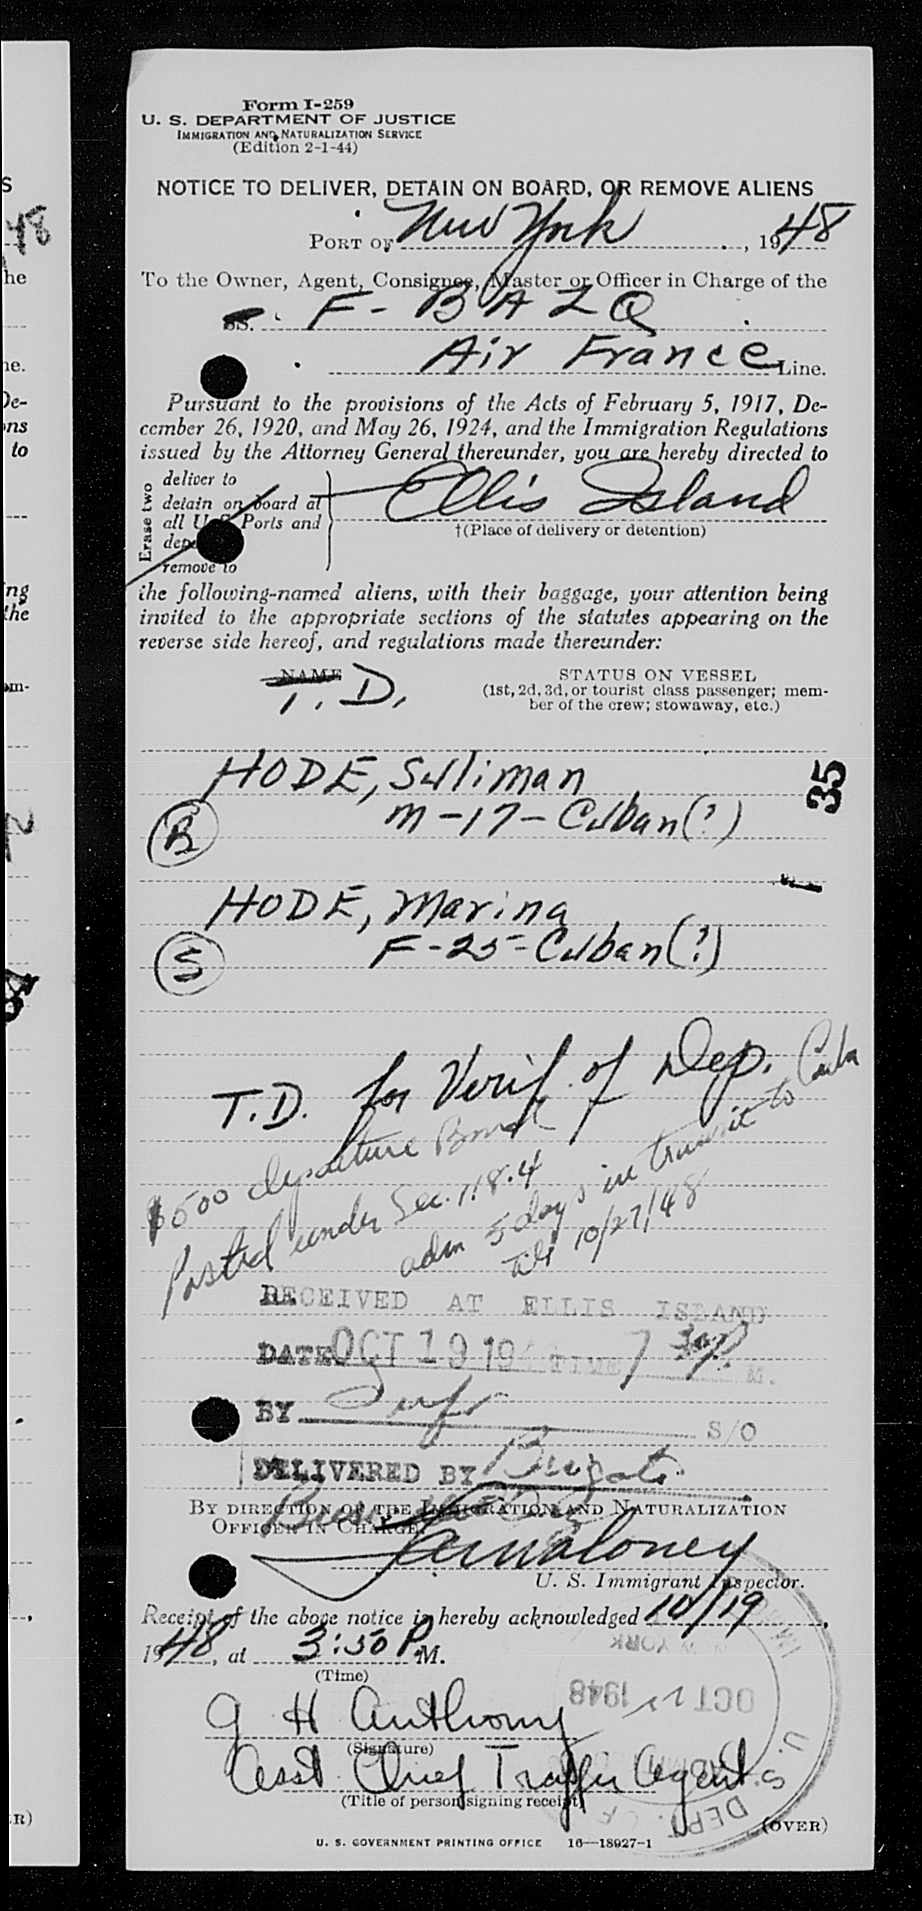 Form I-259
U. S. DEPARTMENT OF JUSTICE
IMMIGRATION AND NATURALIZATION SERVICE
(Edition 2-1-44)
NOTICE TO DELIVER, DETAIN ON BOARD, OR REMOVE ALIENS
PORT OF New York, 1948
To the Owner, Agent, Consignee, Master or Officer in Charge of the
SS. F-BAZQ
Air France Line.
Pursuant to the provisions of the Acts of February 5, 1917, De-
cember 26, 1920, and May 26, 1924, and the Immigration Regulations
issued by the Attorney General thereunder, you are hereby directed to
Erase two
deliver to
detain on board at
all U. S. Ports and
remove to
Ellis Island
†(Place of delivery or detention)
the following-named aliens, with their baggage, your attention being
invited to the appropriate sections of the statutes appearing on the
reverse side hereof, and regulations made thereunder:
NAME STATUS ON VESSEL
T.D. (1st, 2d, 3d, or tourist class passenger; mem-
ber of the crew; stowaway, etc.)
HODE, Suliman
35
R M-17-Cuban(?)
HODE, Marina
S F-25-Cuban(?)
T.D. for Verif. of Dep.
$500 departure Bond
Posted under Sec. 118.4
adm 5 days in transit to Cuba
till 10/27/48
RECEIVED AT ELLIS ISLAND
DATE OCT 19 19 TIME 7 30 P M.
BY S/O
DELIVERED BY
BY DIRECTION OF THE IMMIGRATION AND NATURALIZATION
OFFICER IN CHARGE
Maloney
U. S. Immigrant Inspector.
Receipt of the above notice is hereby acknowledged 10/19,
1948, at 3:50 P.M.
(Time)
G H Anthony
(Signature)
Asst Chief Traffic Agent
(Title of person signing receipt)
OCT 1948
U. S. DEPT. OF
(OVER)
U. S. GOVERNMENT PRINTING OFFICE 16—18927-1